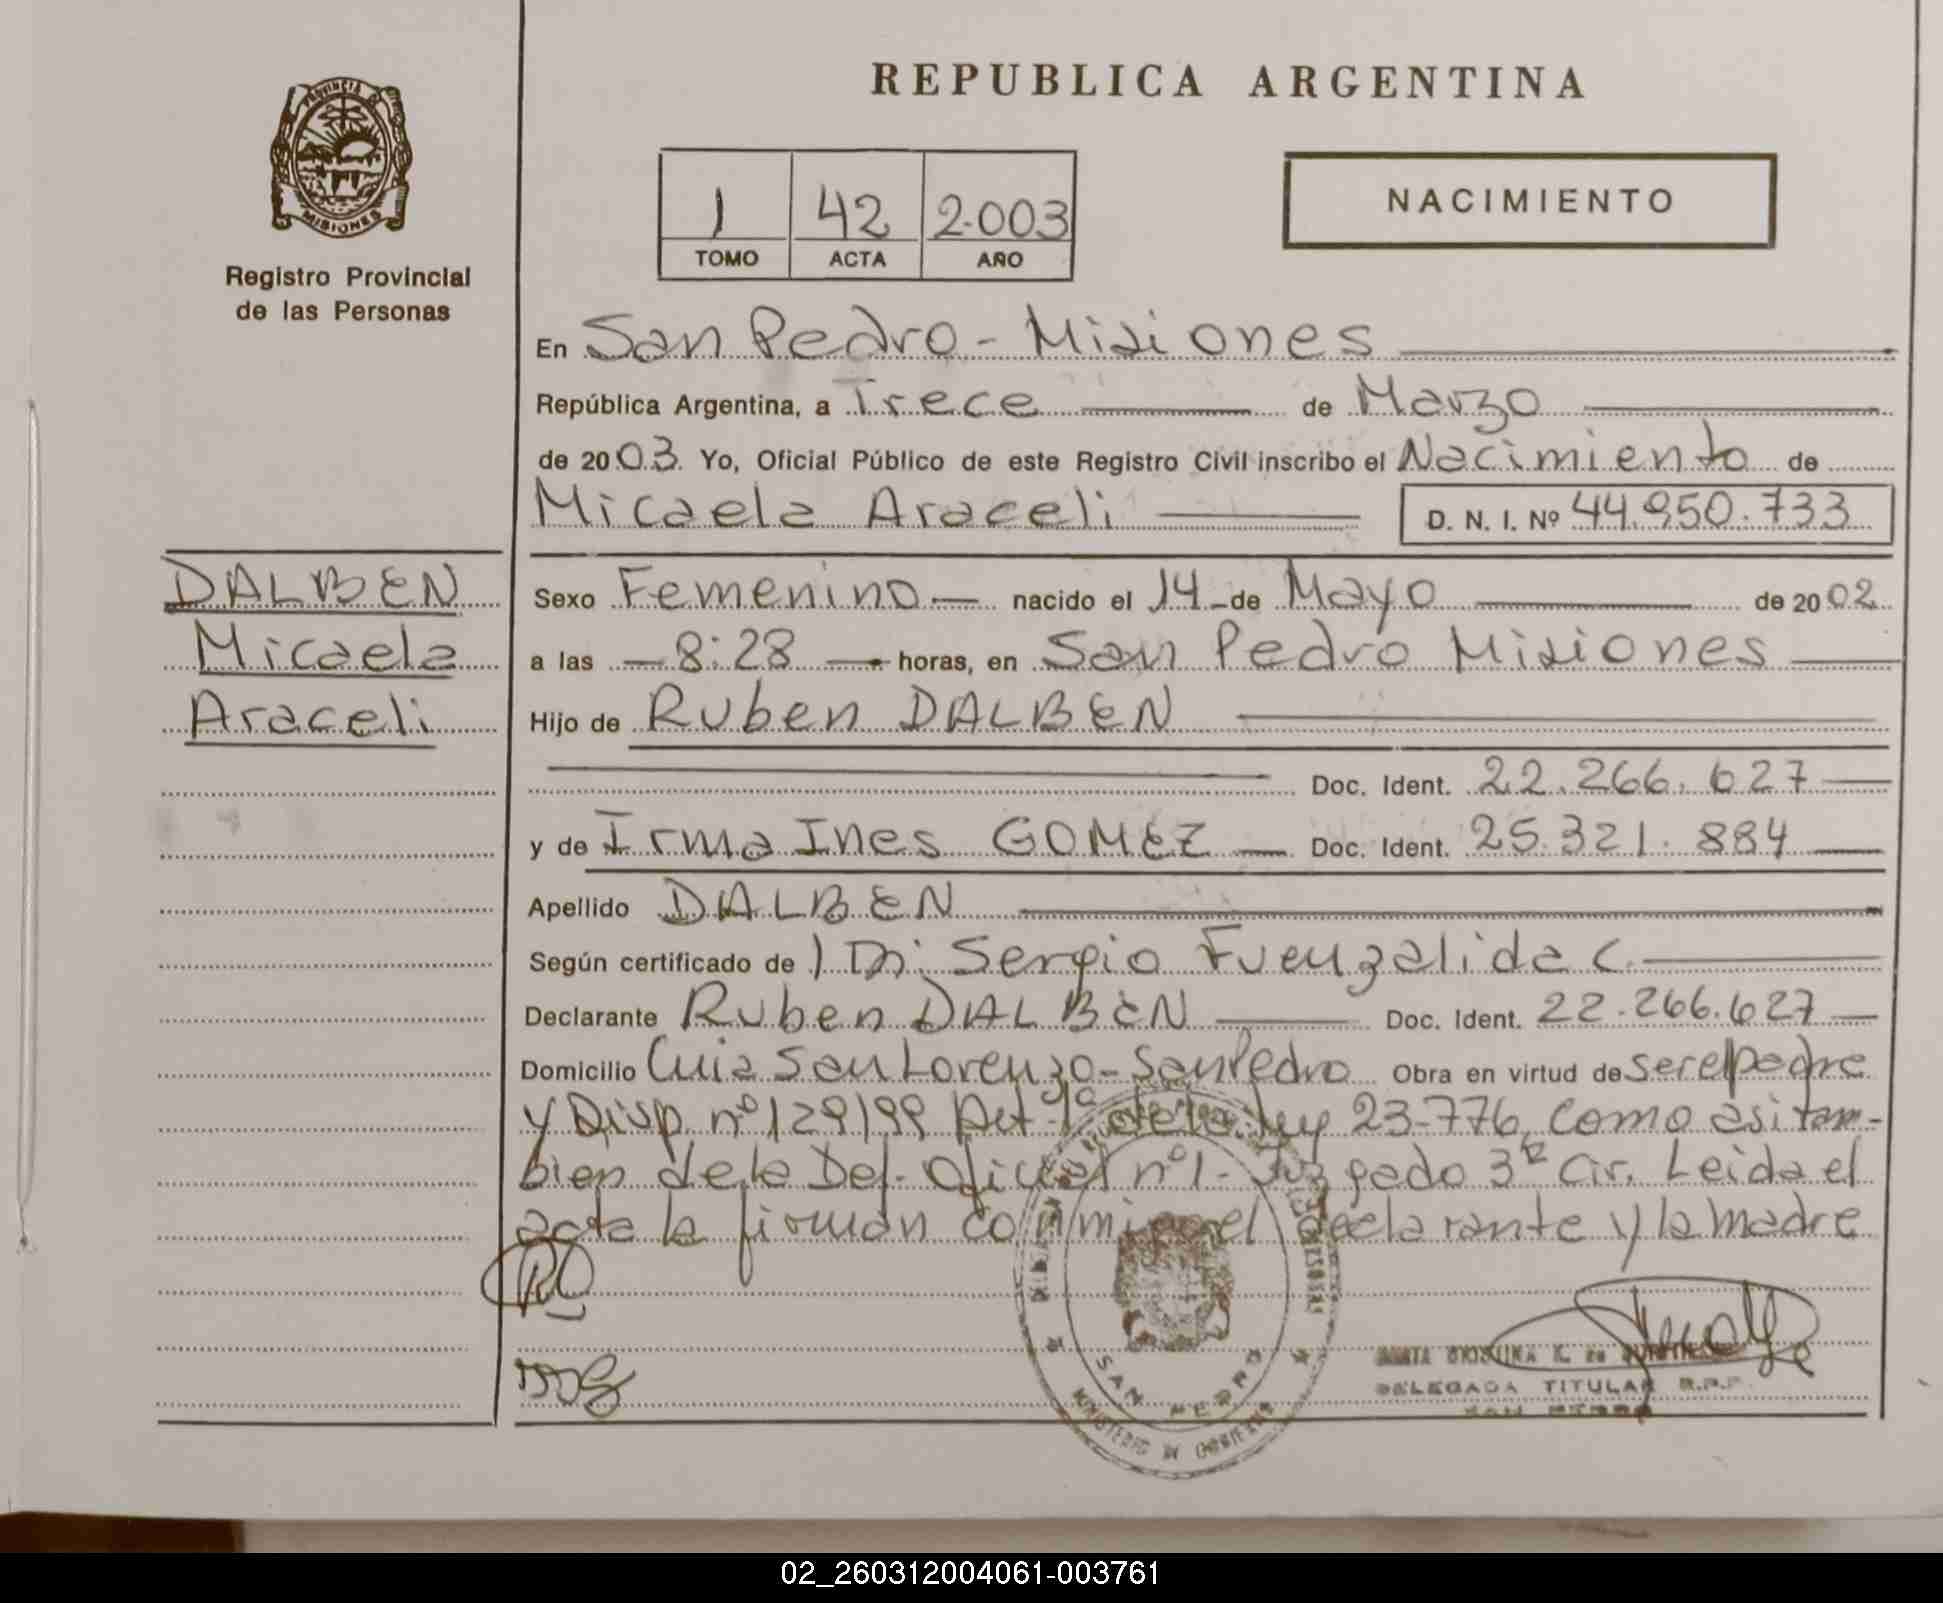 PROVINCIA DE
MISIONES
Registro Provincial
de las Personas
DALBEN
Micaela
Araceli
REPUBLICA ARGENTINA
1 42 2.003
TOMO ACTA AÑO
NACIMIENTO
En San Pedro - Misiones
República Argentina, a Trece de Marzo
de 2003. Yo, Oficial Público de este Registro Civil inscribo el Nacimiento de
Micaela Araceli D. N. I. Nº 44.950.733
Sexo Femenino nacido el 14 de Mayo de 2002
a las 8:28 horas, en San Pedro Misiones
Hijo de Ruben DALBEN
Doc. Ident. 22.266.627
y de Irma Ines GOMEZ Doc. Ident. 25.321.884
Apellido DALBEN
Según certificado de Sergio Fuenzalida C.
Declarante Ruben DALBEN Doc. Ident. 22.266.627
Domicilio Cuia San Lorenzo - San Pedro Obra en virtud de ser el padre
y Disp. nº 129/99 Art 1º de la ley 23.776, como asi tam-
bien de la Def. Oficial nº 1 - Juzgado 3ª Cir. Leida el
acta la firman conmigo el declarante y la madre
SAN PEDRO
MINISTERIO DE GOBIERNO
DELEGADA TITULAR R.P.P.
SAN PEDRO
02_260312004061-003761